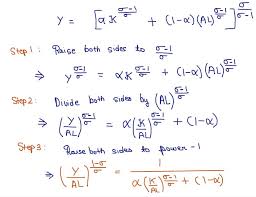 Y = [αK^(σ-1/σ) + (1-α)(AL)^(σ-1/σ)]^(σ/σ-1)
Step 1: Raise both sides to σ-1/σ
⇒ Y^(σ-1/σ) = αK^(σ-1/σ) + (1-α)(AL)^(σ-1/σ)
Step 2: Divide both sides by (AL)^(σ-1/σ)
⇒ (Y/AL)^(σ-1/σ) = α(K/AL)^(σ-1/σ) + (1-α)
Step 3: Raise both sides to power -1
⇒ (Y/AL)^(1-σ/σ) = 1/(α(K/AL)^(σ-1/σ) + (1-α))